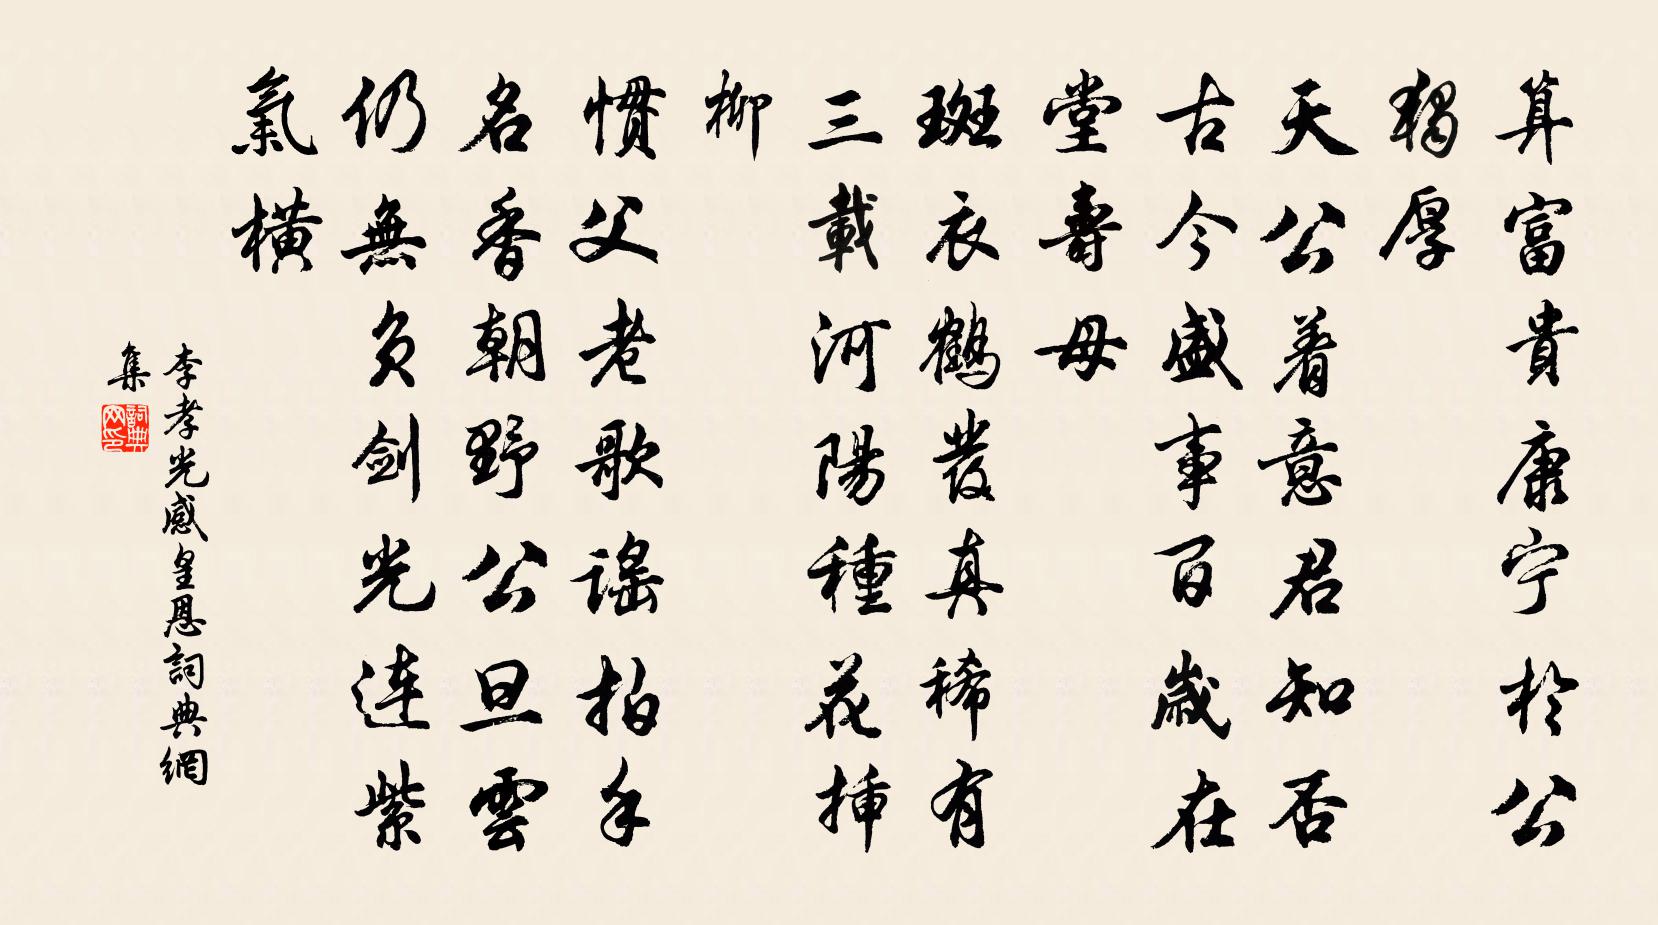 算富貴康宁於公
獨厚
天公着意君知否
古今盛事百歲在
堂壽母
斑衣鶴發真稀有
三載河陽種花挿
柳
慣父老歌謠拍手
名香朝野公旦雲
仍無負劍光连紫
氣橫
李孝光感皇恩詞典網
集
詞典网印